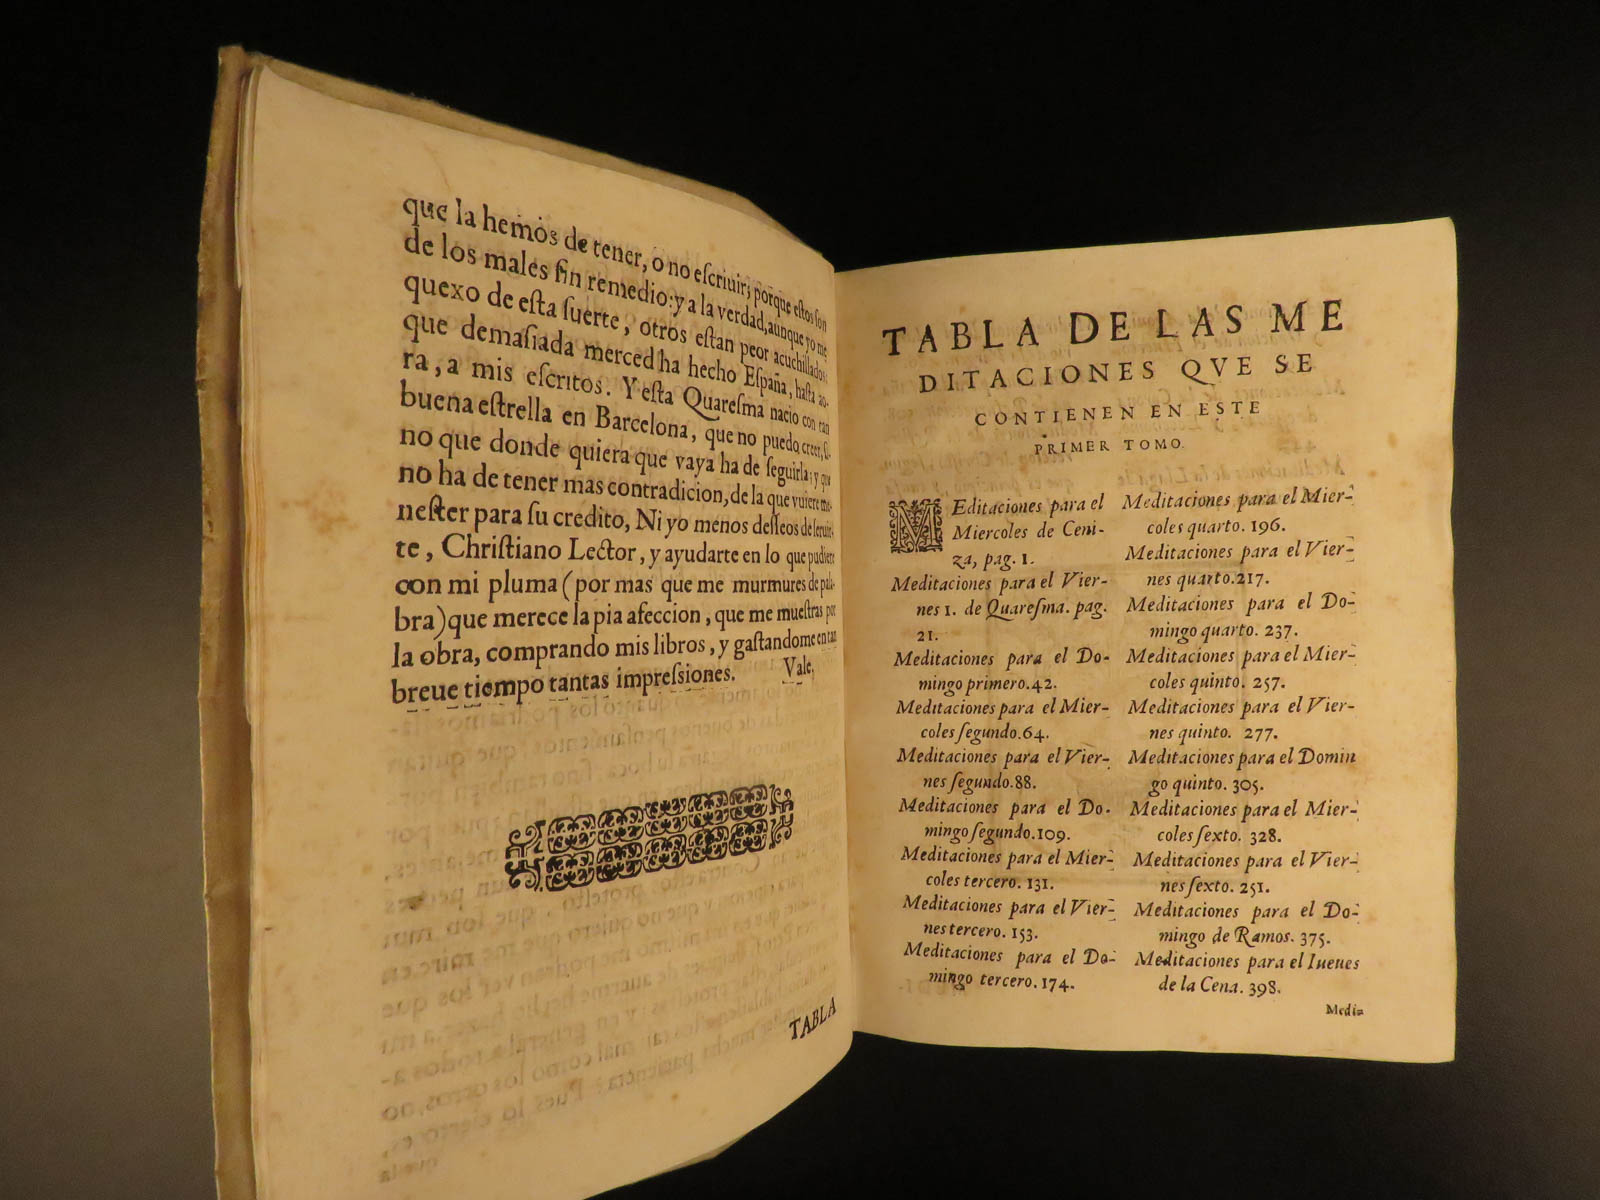 que la hemos de tener, o no eſcriuir; porque eſtos ſon
de los males ſin remedio: y a la verdad, aunque yo me
quexo de eſta ſuerte, otros eſtan peor acuchillados:
que demaſiada merced ha hecho Eſpaña, haſta ao-
ra, a mis eſcritos. Y eſta Quareſma nacio con tan
buena eſtrella en Barcelona, que no puedo creer, ſi-
no que donde quiera que vaya ha de ſeguirla; y que
no ha de tener mas contradicion, de la que vuiere me-
neſter para ſu credito, Ni yo menos deſſeos de ſeruir-
te, Chriſtiano Lector, y ayudarte en lo que pudiere
con mi pluma (por mas que me murmures de pala-
bra) que merece la pia afeccion, que me mueſtras por
la obra, comprando mis libros, y gaſtandome en tan
breue tiempo tantas impreſsiones. Vale,
TABLA
TABLA DE LAS ME
DITACIONES QVE SE
CONTIENEN EN ESTE
PRIMER TOMO.
MEditaciones para el
Miercoles de Ceni-
za, pag. 1.
Meditaciones para el Vier-
nes 1. de Quareſma. pag.
21.
Meditaciones para el Do-
mingo primero. 42.
Meditaciones para el Mier-
coles ſegundo. 64.
Meditaciones para el Vier-
nes ſegundo. 88.
Meditaciones para el Do-
mingo ſegundo. 109.
Meditaciones para el Mier-
coles tercero. 131.
Meditaciones para el Vier-
nes tercero. 153.
Meditaciones para el Do-
mingo tercero. 174.
Meditaciones para el Mier-
coles quarto. 196.
Meditaciones para el Vier-
nes quarto. 217.
Meditaciones para el Do-
mingo quarto. 237.
Meditaciones para el Mier-
coles quinto. 257.
Meditaciones para el Vier-
nes quinto. 277.
Meditaciones para el Domin
go quinto. 305.
Meditaciones para el Mier-
coles ſexto. 328.
Meditaciones para el Vier-
nes ſexto. 251.
Meditaciones para el Do-
mingo de Ramos. 375.
Meditaciones para el Iueues
de la Cena. 398.
Medi-